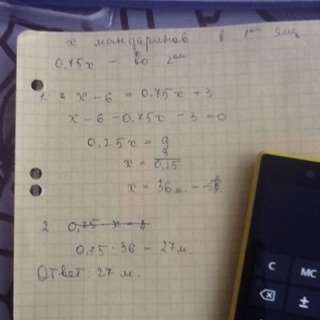 x мандаринов в 1ом ящ
0,75x – во 2ом
1. x – 6 = 0,75x + 3
x – 6 – 0,75x – 3 = 0
0,25x = 9
x = 9/0,25
x = 36
2.
0,75 · 36 = 27 м.
Ответ 27 м.
C MC
±